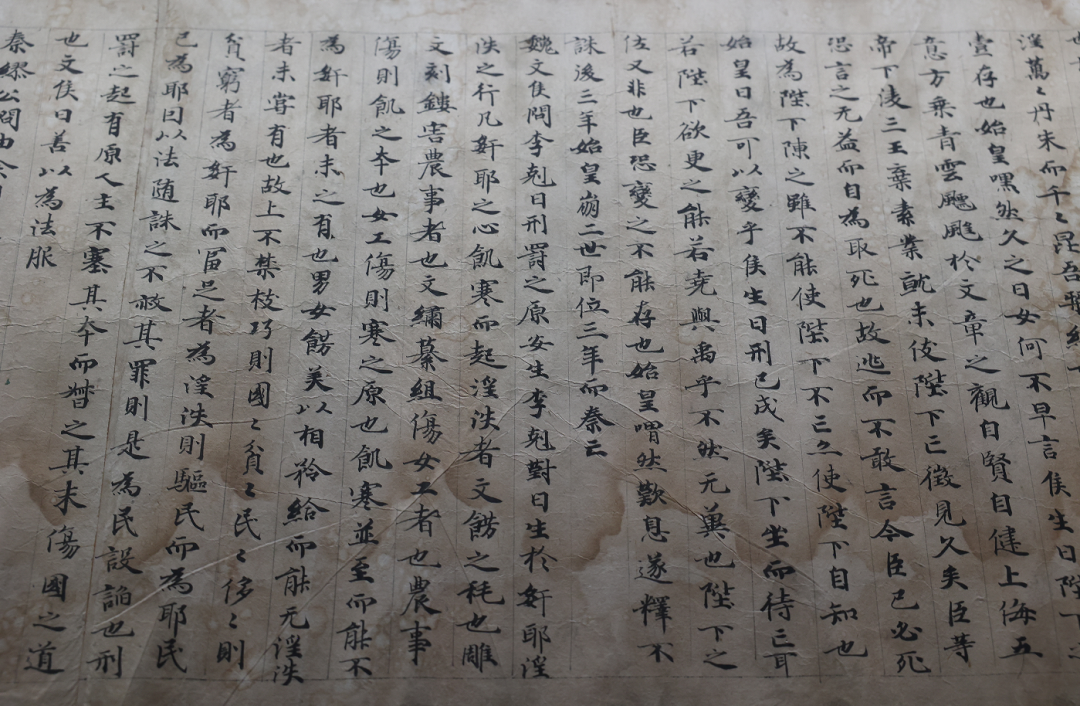 淫萬〻丹朱而千〻昆吾
壹存也始皇嘿然久之曰女何不早言侯生曰陛下之
意方乗青雲飄颻於文章之觀自賢自健上侮五
帝下淩三王棄素業就末伎陛下亡徵見久矣臣等
恐言之无益而自為取死也故逃而不敢言今臣已必死
故為陛下陳之雖不能使陛下不亡亦使陛下自知也
始皇曰吾可以變乎侯生曰刑已成矣陛下坐而待亡耳
若陛下欲更之能若堯與禹乎不然无冀也陛下之
佐又非也臣恐變之不能存也始皇喟然歎息遂釋不
誅後三年始皇崩二世即位三年而秦亡
魏文侯問李剋曰刑罰之原安生李剋對曰生於奸耶淫
泆之行凡奸耶之心飢寒而起淫泆者文餝之秏也雕
文刻鏤害農事者也文繡纂組傷女工者也農事
傷則飢之夲也女工傷則寒之原也飢寒並至而能不
為奸耶者未之有也男女餝美以相矜給而能无淫泆
者未甞有也故上不禁枝巧則國〻貧〻民〻侈〻則
貧窮者為奸耶而冨足者為淫泆則驅民而為耶民
已為耶因以法随誅之不赦其罪則是為民設諂也刑
罰之起有原人主不塞其夲而朁之其末傷國之道
也文侯曰善以為法服
秦繆公問由余曰